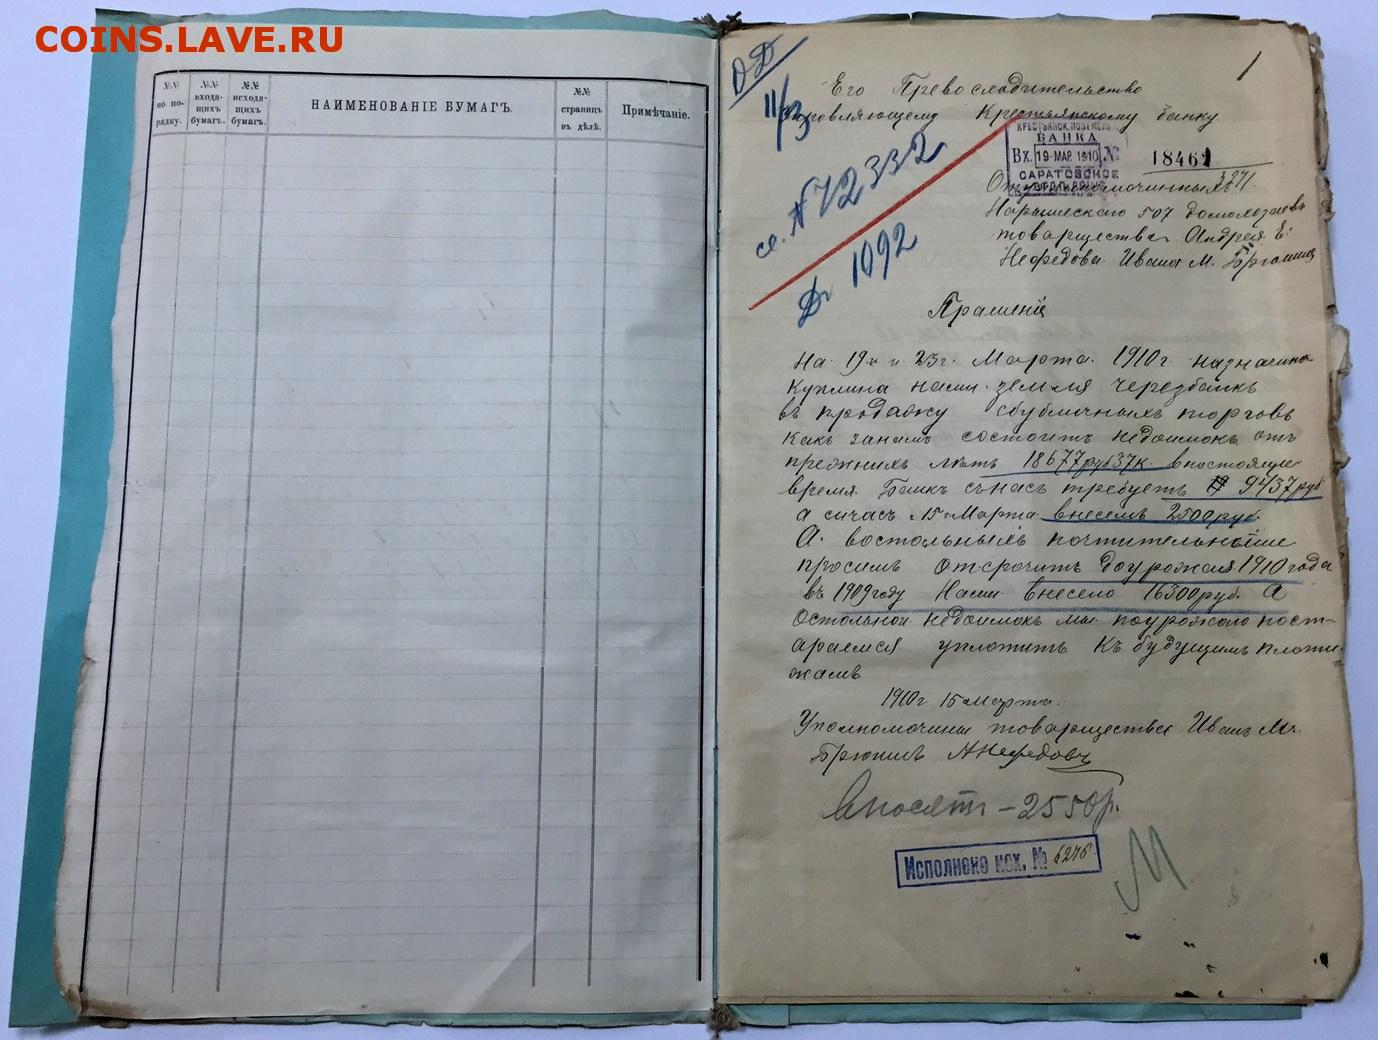 COINS.LAVE.RU
№№ по по-рядку.
№№ входя-щихъ бумагъ.
№№ исходя-щихъ бумагъ.
НАИМЕНОВАНІЕ БУМАГЪ.
№№ страницъ въ дѣлѣ.
Примѣчаніе.
1
О-Д
11/3
Его Превосходительство
Управляющему Крестьянскому банку
КРЕСТЬЯНСК. ПОЗЕМЕЛЬН.
БАНКА
Вх. 19 МАР. 1910 № 18461
САРАТОВСКОЕ
ОТДѢЛЕНІЕ
3271
№ 72332
Д 1092
507 домохозаевъ
товарищества Андрея Е.
Нефедова Ивана М.
Прашеніе
на 19 и 23 г. Марта 1910 г. назначина
Куплина нами земля черезбанкъ
въ продажу спубличныхъ торговъ
какъ занамъ состоитъ недоимокъ отъ
прежнихъ лѣтъ 18677 руб 37 к. внастоящие
время Банкъ снасъ требуетъ 9437 руб
а сичасъ 15 Марта внесемъ 2500 руб.
А. востольныхъ почтительнейше
просимъ отсрочить доурожая 1910 года
въ 1909 году Нами внесено 16300 руб. А
Остольной недоимокъ мы поурожаю пост-
араемся уплотить Къ будущимъ плати-
жамъ
1910 г 15 Марта.
Уполномочины товарищества Иванъ М.
А Нефедовъ
Вносятъ - 2550 р.
Исполнено исх. № 6276
М